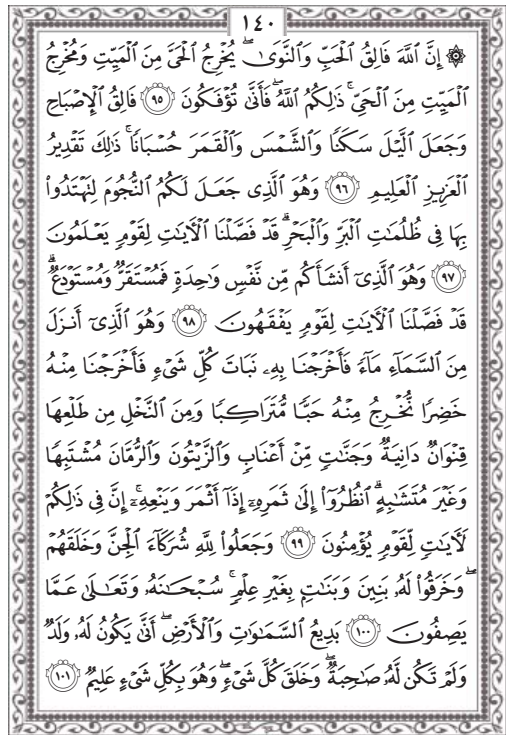 ١٤٠
۞ إِنَّ ٱللَّهَ فَالِقُ ٱلْحَبِّ وَٱلنَّوَىٰ ۖ يُخْرِجُ ٱلْحَىَّ مِنَ ٱلْمَيِّتِ وَمُخْرِجُ
ٱلْمَيِّتِ مِنَ ٱلْحَىِّ ۚ ذَٰلِكُمُ ٱللَّهُ ۖ فَأَنَّىٰ تُؤْفَكُونَ ٩٥ فَالِقُ ٱلْإِصْبَاحِ
وَجَعَلَ ٱلَّيْلَ سَكَنًا وَٱلشَّمْسَ وَٱلْقَمَرَ حُسْبَانًا ۚ ذَٰلِكَ تَقْدِيرُ
ٱلْعَزِيزِ ٱلْعَلِيمِ ٩٦ وَهُوَ ٱلَّذِى جَعَلَ لَكُمُ ٱلنُّجُومَ لِتَهْتَدُوا۟
بِهَا فِى ظُلُمَٰتِ ٱلْبَرِّ وَٱلْبَحْرِ ۗ قَدْ فَصَّلْنَا ٱلْءَايَٰتِ لِقَوْمٍ يَعْلَمُونَ
٩٧ وَهُوَ ٱلَّذِىٓ أَنشَأَكُم مِّن نَّفْسٍ وَٰحِدَةٍ فَمُسْتَقَرٌّ وَمُسْتَوْدَعٌ ۗ
قَدْ فَصَّلْنَا ٱلْءَايَٰتِ لِقَوْمٍ يَفْقَهُونَ ٩٨ وَهُوَ ٱلَّذِىٓ أَنزَلَ
مِنَ ٱلسَّمَآءِ مَآءً فَأَخْرَجْنَا بِهِۦ نَبَاتَ كُلِّ شَىْءٍ فَأَخْرَجْنَا مِنْهُ
خَضِرًا نُّخْرِجُ مِنْهُ حَبًّا مُّتَرَاكِبًا وَمِنَ ٱلنَّخْلِ مِن طَلْعِهَا
قِنْوَانٌ دَانِيَةٌ وَجَنَّٰتٍ مِّنْ أَعْنَابٍ وَٱلزَّيْتُونَ وَٱلرُّمَّانَ مُشْتَبِهًا
وَغَيْرَ مُتَشَٰبِهٍ ۗ ٱنظُرُوٓا۟ إِلَىٰ ثَمَرِهِۦٓ إِذَآ أَثْمَرَ وَيَنْعِهِۦٓ ۚ إِنَّ فِى ذَٰلِكُمْ
لَءَايَٰتٍ لِّقَوْمٍ يُؤْمِنُونَ ٩٩ وَجَعَلُوا۟ لِلَّهِ شُرَكَآءَ ٱلْجِنَّ وَخَلَقَهُمْ
ۖ وَخَرَقُوا۟ لَهُۥ بَنِينَ وَبَنَٰتٍۭ بِغَيْرِ عِلْمٍ ۚ سُبْحَٰنَهُۥ وَتَعَٰلَىٰ عَمَّا
يَصِفُونَ ١٠٠ بَدِيعُ ٱلسَّمَٰوَٰتِ وَٱلْأَرْضِ ۖ أَنَّىٰ يَكُونُ لَهُۥ وَلَدٌ
وَلَمْ تَكُن لَّهُۥ صَٰحِبَةٌ ۖ وَخَلَقَ كُلَّ شَىْءٍ ۖ وَهُوَ بِكُلِّ شَىْءٍ عَلِيمٌ ١٠١